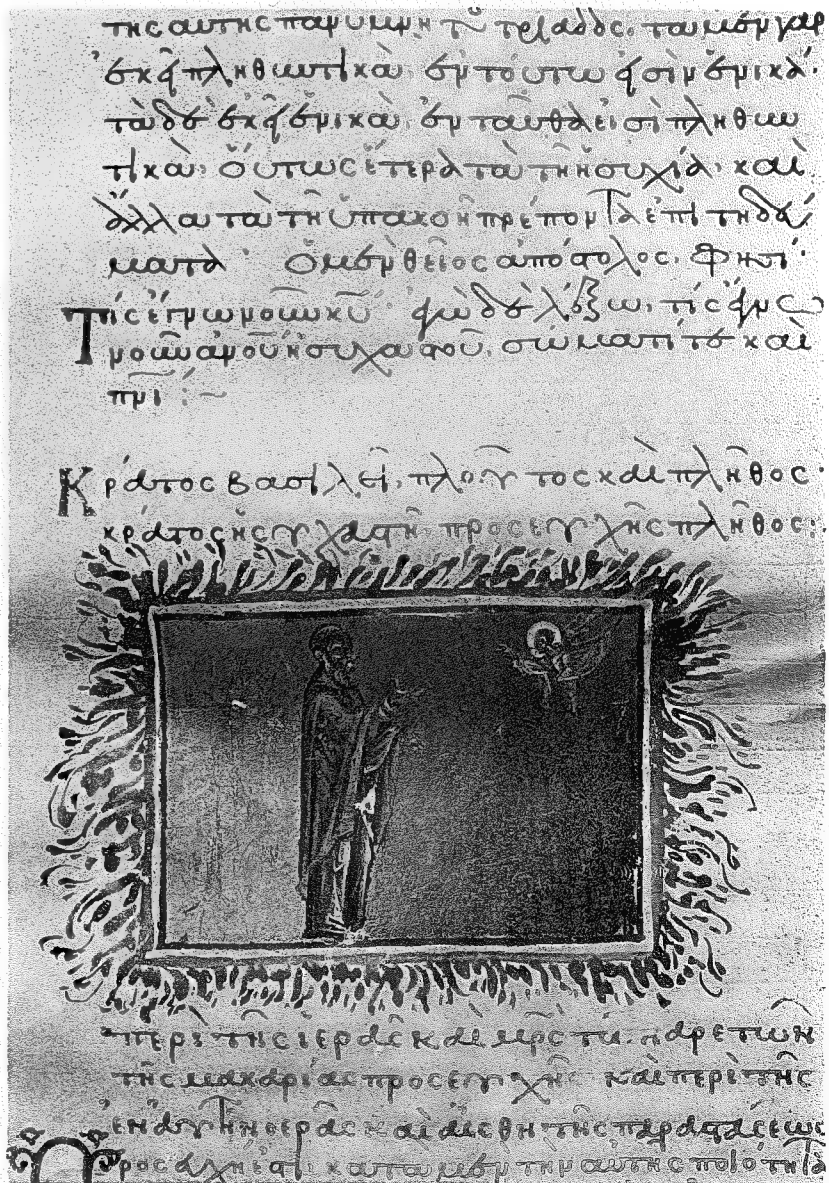 τῆς αὐτῆς τριάδος. τὰ μὲν γὰρ
ἐκεῖ πληθυντικὰ, ἐν τούτω εἰσὶν ἑνικά·
τὰ δὲ ἐκεῖ ἑνικὰ, ἐνταῦθα εἰσὶ πληθυν
τικά· οὕτως ἕτερα τὰ τῆ ἡσυχία, καὶ
ἄλλα τὰ τῆ ὑπακοῆ πρέποντα ἐπιτηδεύ
ματα· Ὁ μὲν θεῖος ἀπόστολος φησί·
Τίς ἔγνω νοῦν κυ· ἐγὼ δὲ λέξω, τίς ἔγνω
νοῦν ἀνου ἡσυχαστοῦ, σώματί τε καὶ
πνι :~
Κράτος βασιλεῖ, πλοῦτος καὶ πλῆθος·
κράτος ἡσυχαστῆ, προσευχῆς πλῆθος:
περὶ τῆς ἱερᾶς καὶ μρς τῶν ἀρετῶν
τῆς μακαρίας προσευχῆς καὶ περὶ τῆς
ἐν αὐτῆ νοερᾶς καὶ αἰσθητῆς παραστάσεως
Προσευχή ἐστι κατὰ μὲν τὴν αὐτῆς ποιότητα